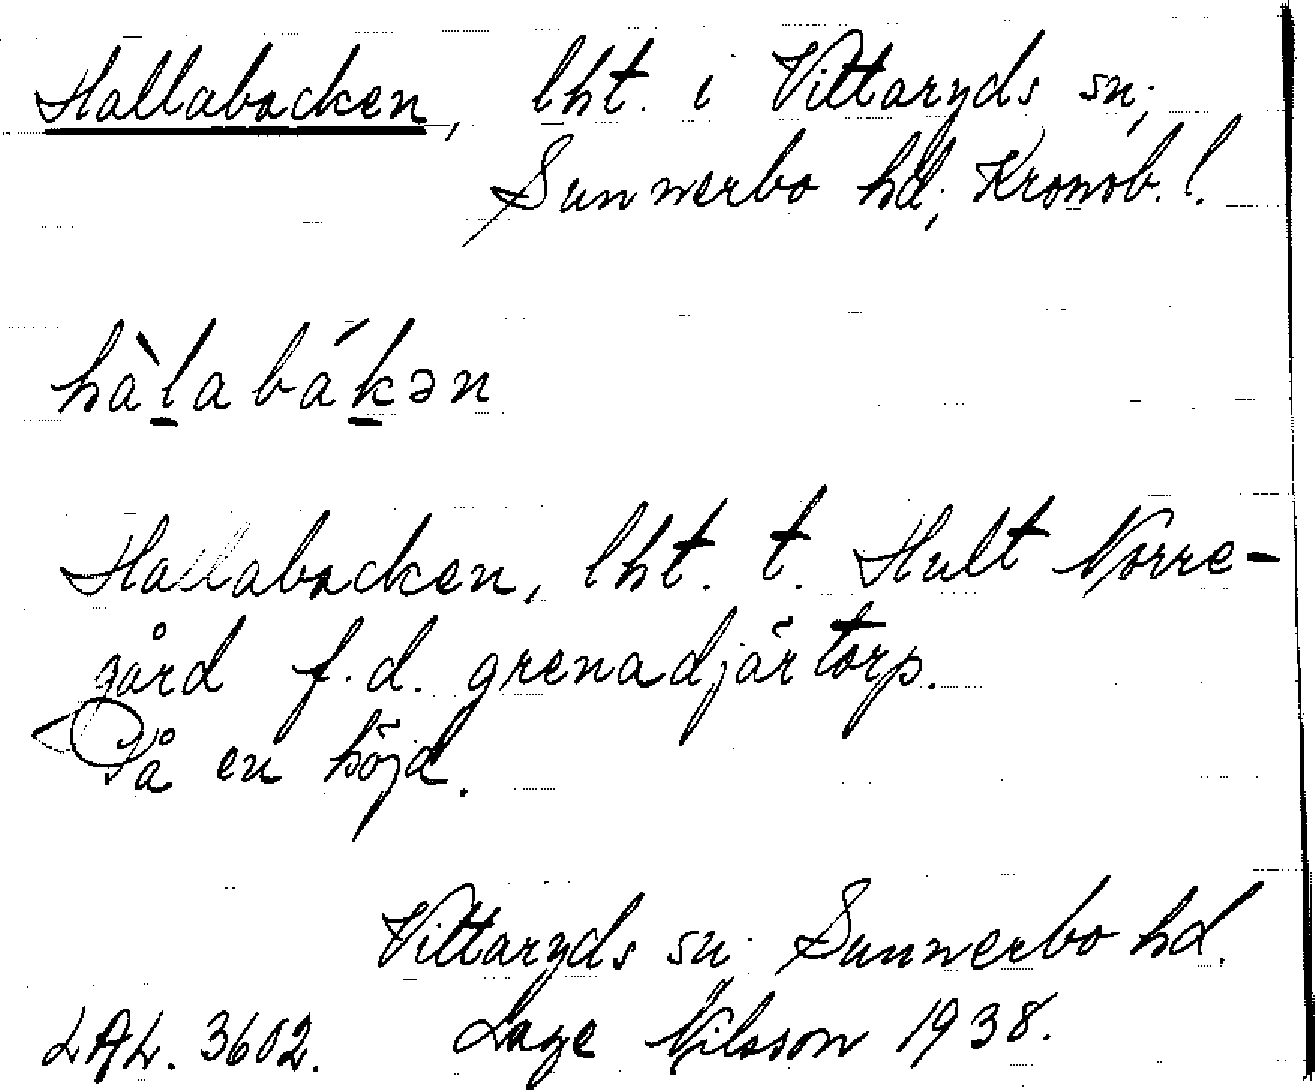 Hallabacken, lht. i Vittaryds sn,
Sunnerbo hd, Kronob. l.
hàlabákən
Hallabacken, lht. t. Hult Norre-
gård f.d. grenadjärtorp.
På en höjd.
Vittaryds sn. Sunnerbo hd.
LAL. 3602. Lage Nilsson 1938.